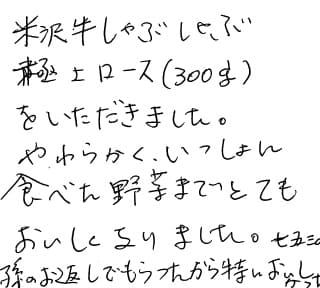 米沢牛しゃぶしゃぶ
極上ロース(300g)
をいただきました。
やわらかく、いっしょに
食べた野菜までとても
おいしくなりました。七五三の
孫のお返しでもらったから特においしかった